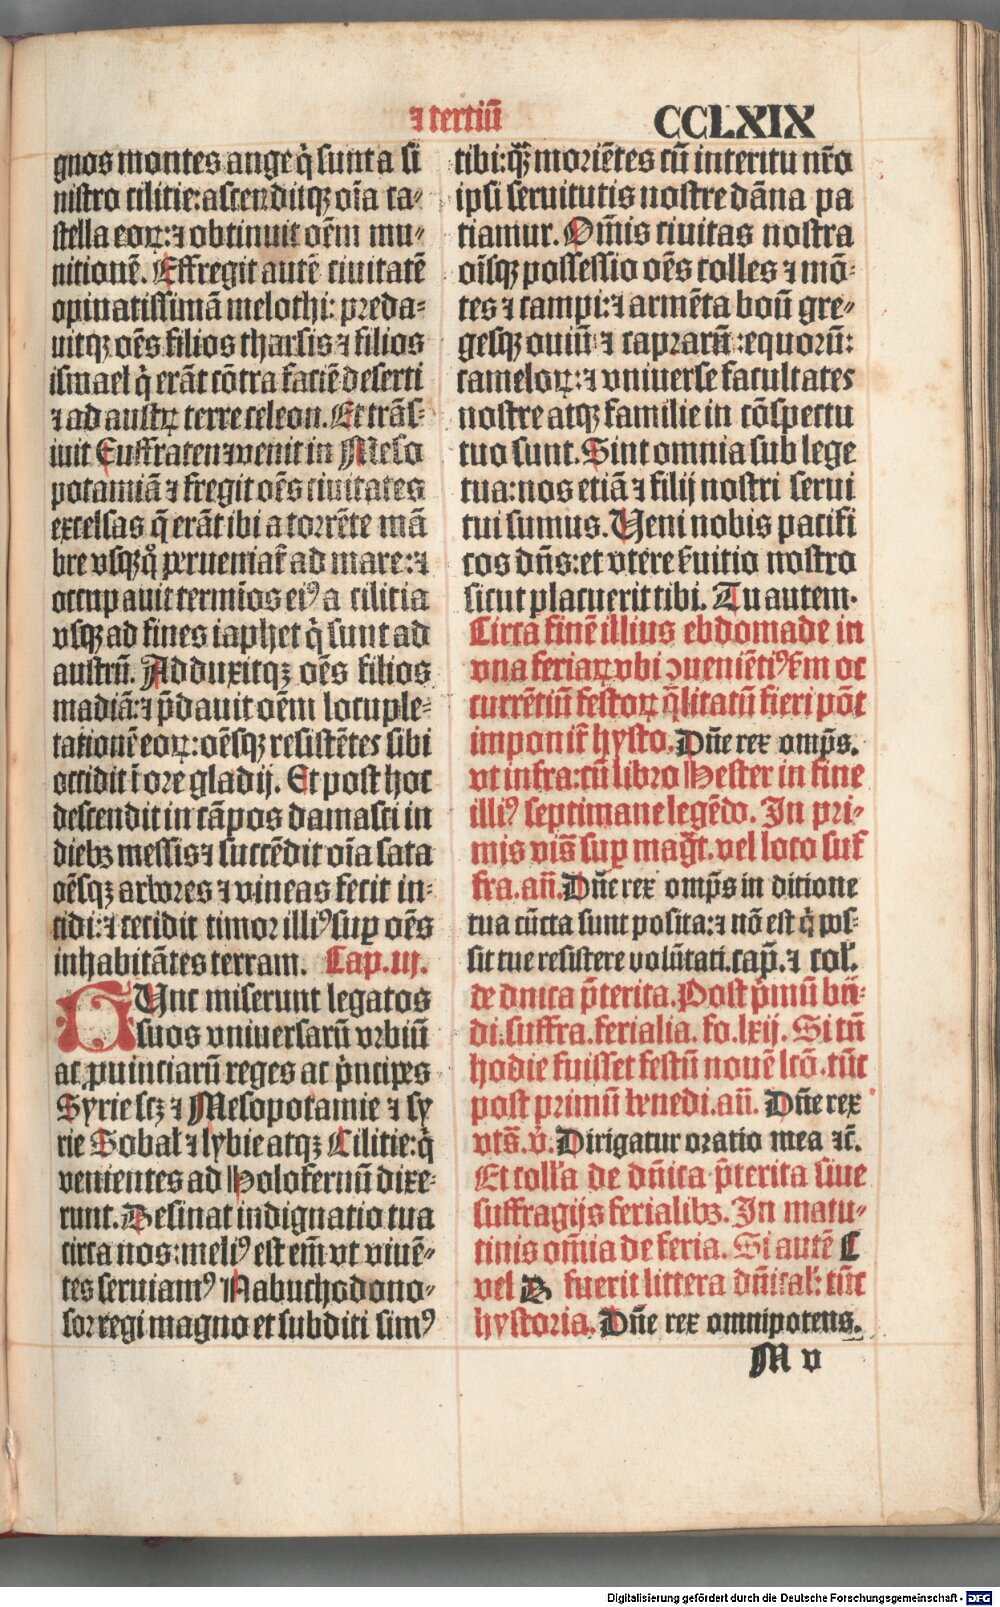 ⁊ tertiū CCLXIX
gnos montes ange q̇ sunt a si
nistro cilicie: ascenditqꝫ oīa ca⸗
stella eoꝝ: ⁊ obtinuit oēm mu⸗
nitionē. Effregit autē ciuitatē
opinatissimā melothi: preda⸗
uitqꝫ oēs filios tharsis ⁊ filios
ismael q̇ erāt cōtra faciē deserti
⁊ ad austꝝ terre celeon. Et trās⸗
iuit Euffraten ⁊ venit in Meso
potamiā ⁊ fregit oēs ciuitates
excelsas q̄ erāt ibi a torrēte mā
bre vsqꝫ q̊ perueniat᷑ ad mare: ⁊
occupauit termīos eiꝰ a cilicia
vsqꝫ ad fines iaphet q̇ sunt ad
austrū. Adduxitqꝫ oēs filios
madiā: ⁊ p̄dauit oēm locuple⸗
tationē eoꝝ: oēsqꝫ resistētes sibi
occidit ī ore gladij. Et post hoc
descendit in cāpos damasci in
diebꝫ messis ⁊ succēdit oīa sata
oēsqꝫ arbores ⁊ vineas fecit in⸗
cidi: ⁊ cecidit timor illiꝰ suꝑ oēs
inhabitātes terram. Cap. iij.
TUnc miserunt legatos
suos vniuersarū vrbiū
ac ꝓuinciarū reges ac p̓ncipes
Syrie scꝫ ⁊ Mesopotamie ⁊ sy
rie Sobal ⁊ lybie atqꝫ Cilicie: q̇
venientes ad Holofernū dixe⸗
runt. Desinat indignatio tua
circa nos: meliꝰ est em̄ vt viuē⸗
tes seruiamꝰ Nabuchodono⸗
sor regi magno et subditi simꝰ
tibi: qꝫ̄ moriētes cū interitu nr̄o
ipsi seruitutis nostre dāna pa
tiamur. Om̄is ciuitas nostra
oīsqꝫ possessio oēs colles ⁊ mō⸗
tes ⁊ campi: ⁊ armēta boū gre⸗
gesqꝫ ouiū ⁊ caprarū: equorū:
cameloꝝ: ⁊ vniuerse facultates
nostre atqꝫ familie in cōspectu
tuo sunt. Sint omnia sub lege
tua: nos etiā ⁊ filij nostri serui
tui sumus. Veni nobis pacifi
cos dn̄s: et vtere ẜuitio nostro
sicut placuerit tibi. Tu autem.
Circa finē illius ebdomade in
vna feriaꝝ vbi ꝯueniētiꝰ ẜm oc
currētiū festoꝝ q̄litatū fieri pōt
imponit᷑ hysto. Dn̄e rex omp̄s.
vt infra: cū libro Hester in fine
illiꝰ septimane legēdo. In pri⸗
mis vīs suꝑ mag̃t. vel loco suf
fra. an̄. Dn̄e rex omp̄s in ditione
tua cūcta sunt posita: ⁊ nō est q̇ pos⸗
sit tue resistere volūtati. cap̄. ⁊ col̃.
de dnica p̄terita. Post p̓mū bn̄⸗
di. suffra. ferialia. fo. lxij. Si tn̄
hodie fuisset festū nouē lcō. tūc
post primū benedi. an̄. Dn̄e rex
vts̄. v̓. Dirigatur oratio mea ⁊c̄.
Et coll̃a de dn̄ica p̄terita siue
suffragijs ferialibꝫ. In matu⸗
tinis om̄ia de feria. Si autē C
vel B fuerit littera dn̄ical̃: tūc
hystoria. Dn̄e rex omnipotens.
M v
Digitalisierung gefördert durch die Deutsche Forschungsgemeinschaft - DFG